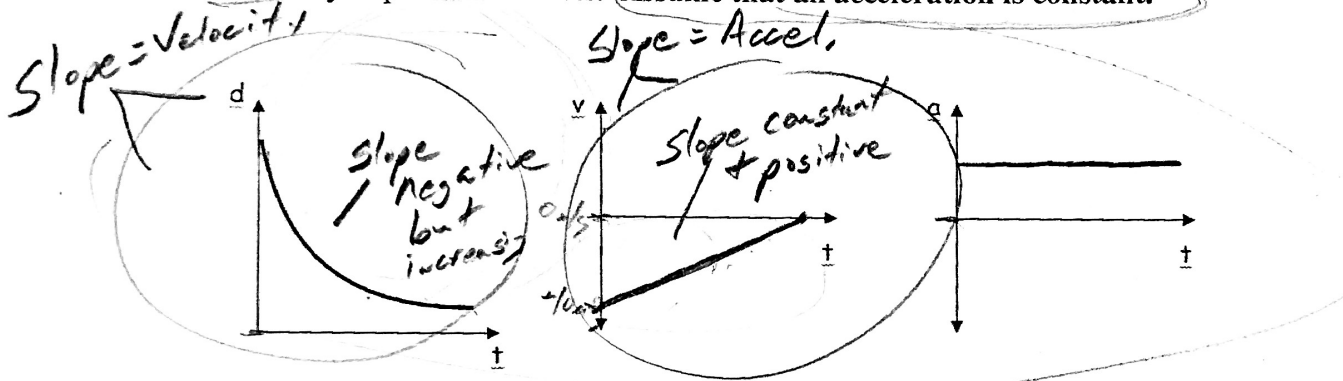 Assume that an acceleration is constant.
Slope = Velocity
Slope = Accel.
d
slope
negative
but
t
v
Slope constant
+ positive
t
a
t